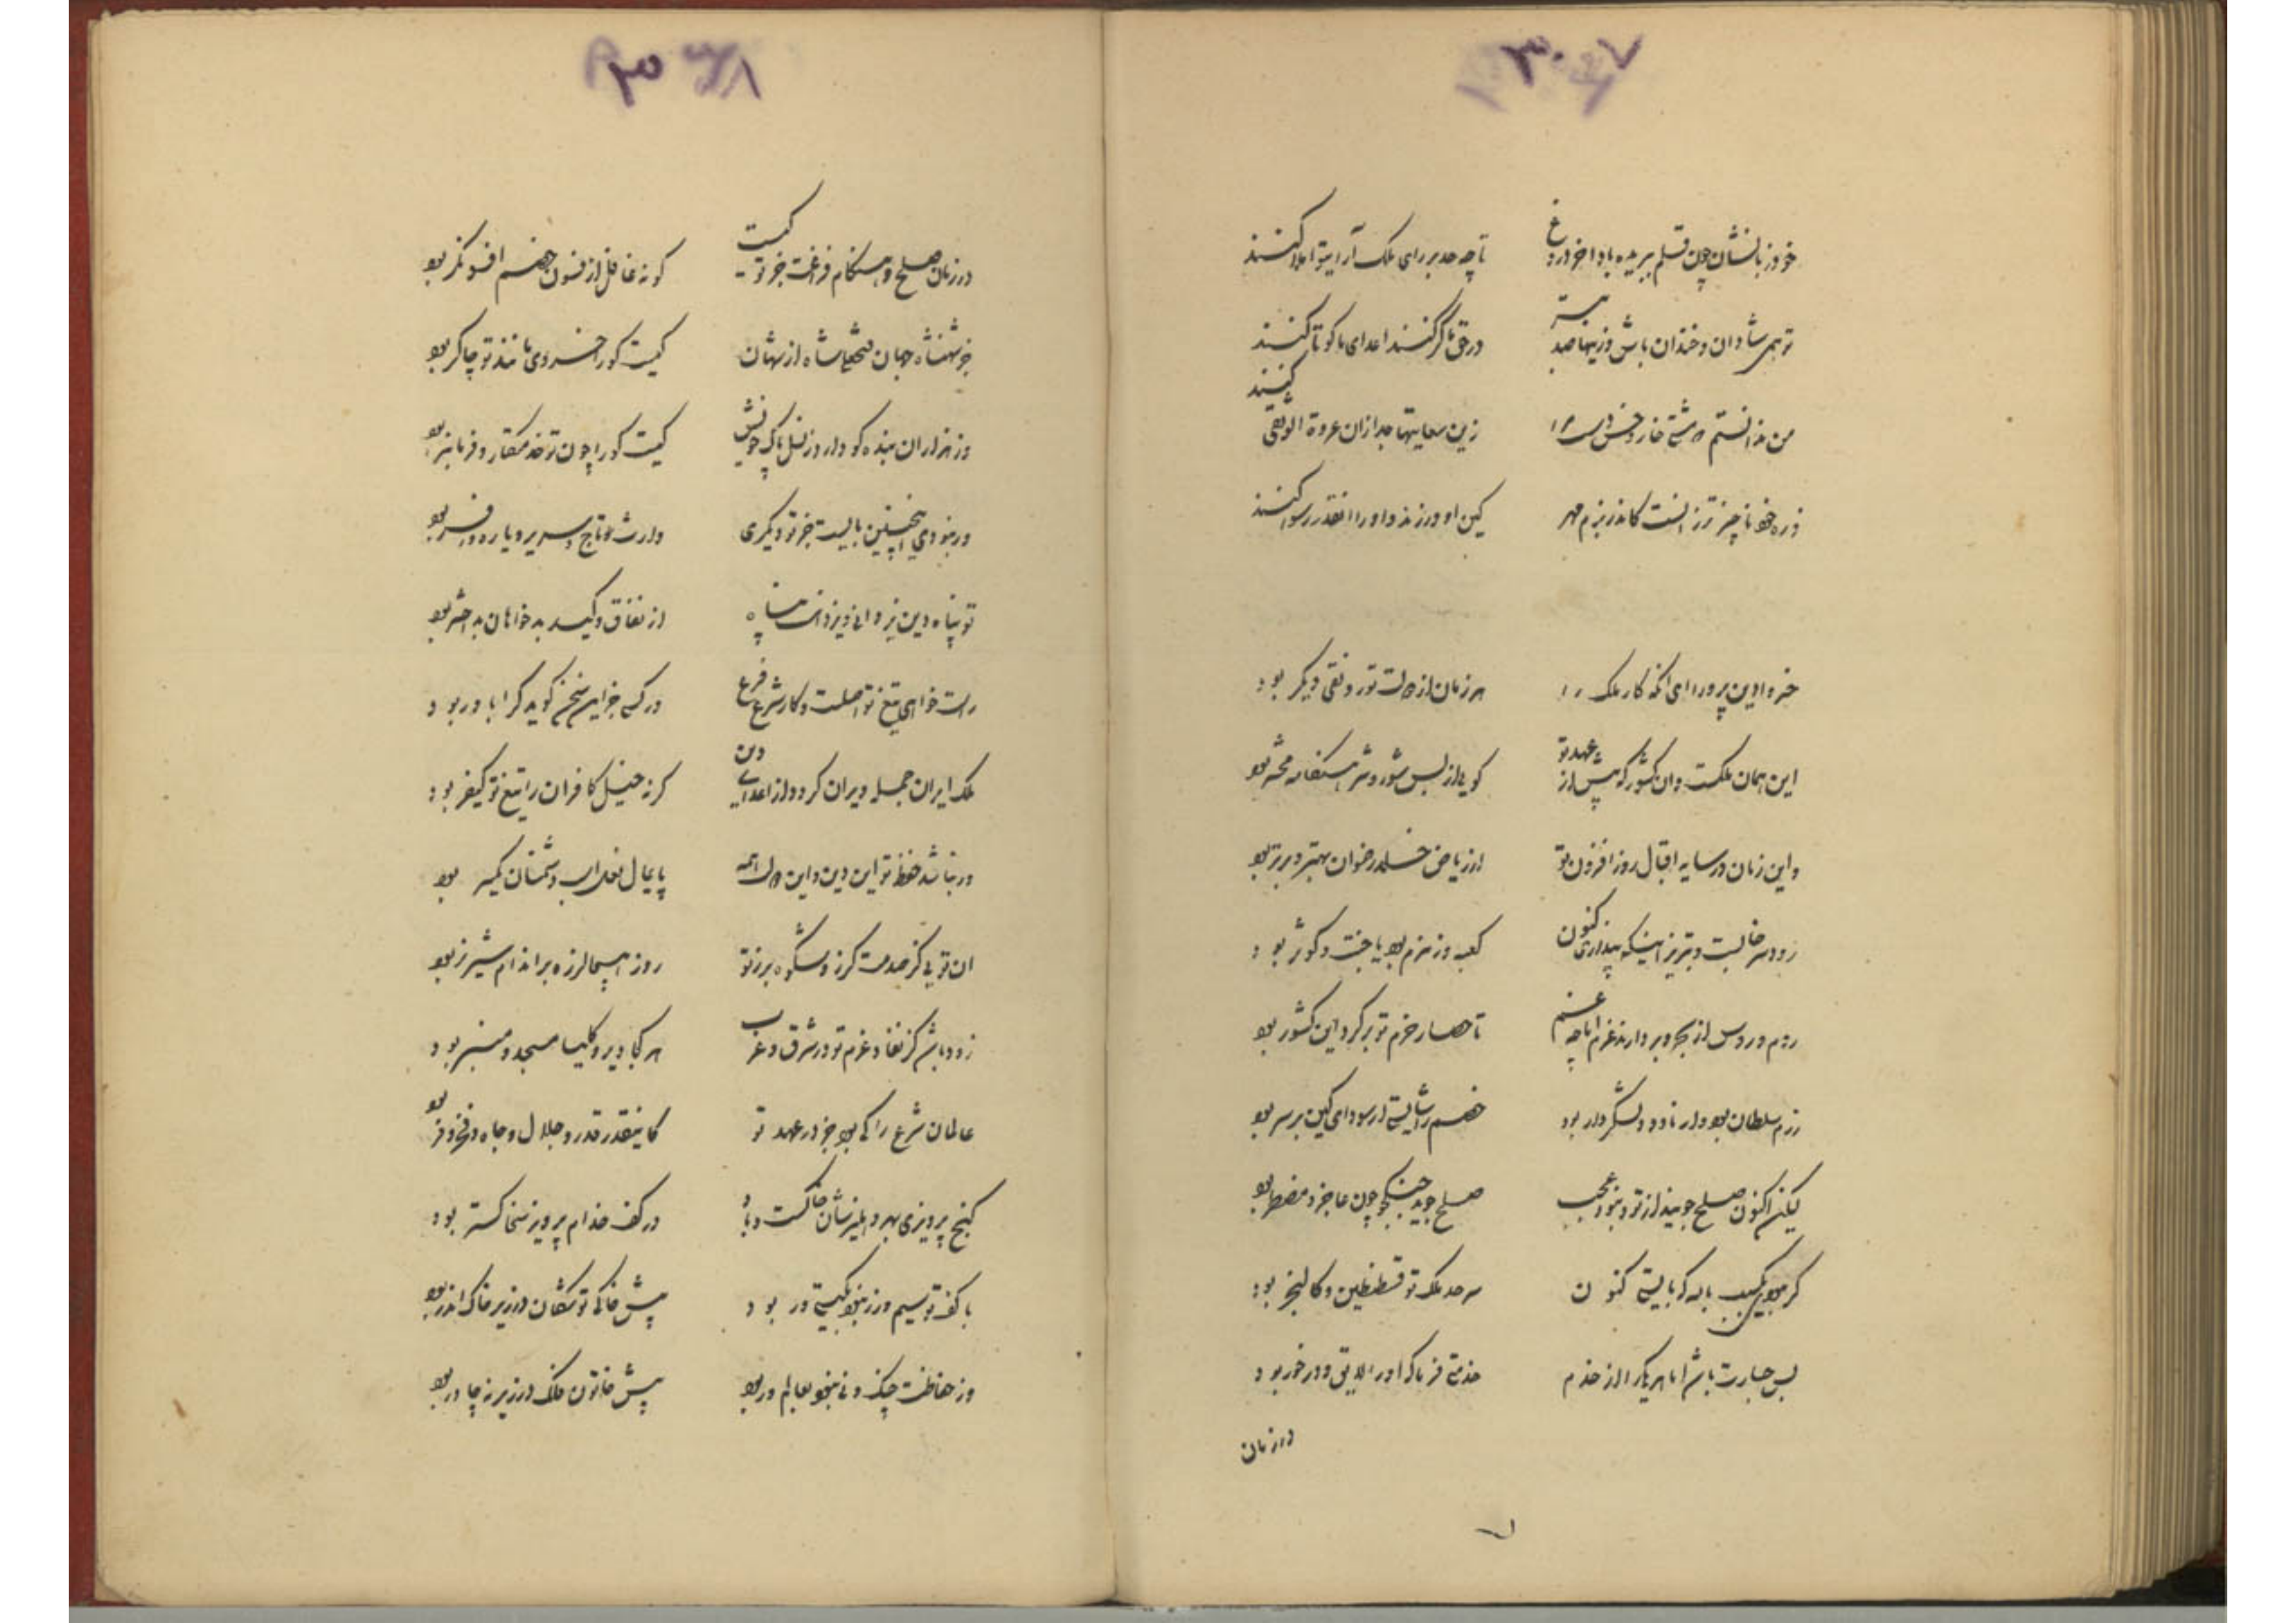 ۳۰۷
خود زبانشان چون قلم ببریده بادا خر دروغ
تا چه حد بر رای ملک آرا بتو املا کنند
تو همی شادان و خندان باش وزینها صد بتر
در حق ما گر کنند اعدای ما کو تا کنند
من ندانستم که مشتی خار و خس را
زین سعایتها جدا زان عروة الوثقی کنند
ذره خود ناچیزتر زانست کاندر بزم مهر
کین او ورزند و او را اینقدر رسوا کنند
خسروا دین پرورا ای آنکه کار ملک را
هر زمان از دولت تو رونقی دیگر بود
این همان ملکست و آن کشور که پیش از عهد تو
گویی از بس شور و شر هنگامه محشر بود
و این زمان در سایه اقبال روز افزون تو
از ریاض خلد و رضوان بهتر و برتر بود
رود سرخابست و تبریز اینکه پنداری کنون
کعبه و زمزم بود یا جنت و کوثر بود
روم و روس از بحر و بر دارند عزم اما چه غم
تا حصار حزم تو بر گرد این کشور بود
رزم سلطان بود و دارنده و لشکر دار بود
خصم را بایستی ار سودای کین بر سر بود
لیکن اکنون صلح جویند از تو و نبود عجب
صلح جوید جنگجو چون عاجز و مضطر بود
گر بایستی کنون
سرحد ملک تو قسطنطین و کالنجر بود
بس جسارت باشد اما هر یکی را از خدم
خدمتی فرما که او را لایق و درخور بود
در زمان
۳۰۸
در زمان صلح و هنگام فراغت جز تو کیست
کو نه غافل از فسون خصم افسونگر بود
جز شهنشاه جهان فتحعلی شاه از شهان
کیست کو را خسروی مانند تو چاکر بود
وز هزاران بنده کو دارد ز نسل پاک خویش
کیست کو را چون تو خدمتکار و فرمانبر بود
ور نبودی اینچنین بایست جز تو دیگری
وارث تاج و سریر و یاره و افسر بود
تو پناه دین یزدانی و یزدانت پناه
از نفاق و کید بدخواهان بد اختر بود
راست خواهی تیغ تو اصلست و کار شرع فرع
ور کسی جز این سخن گوید کرا باور بود
ملک ایران جمله ویران گردد از اعدای دین
گر نه خیل کافران را تیغ تو کیفر بود
ور نباشد حفظ تو این دین و این دولت همه
پایمال نعل اسب دشمنان یکسر بود
آن تویی کز صدمت گرز و شکوه برز تو
روز هیجا لرزه بر اندام شیر نر بود
زود باشد کز نفاذ عزم تو در شرق و غرب
هر کجا دیر و کلیسا مسجد و منبر بود
عالمان شرع را کی بود جز در عهد تو
کاینقدر قدر و جلال و جاه و فخر و فر بود
گنج پرویزی بر دهلیزشان خاکست و باد
در کف خدام پرویزن خاکستر بود
با کف تو سیم و زر نبود بگیتی ور بود
پیش خاک تو در زیر خاک اندر بود
وز حفاظت جنگ و نی نبود بعالم ور بود
پیش خاتون در زیر چادر بود